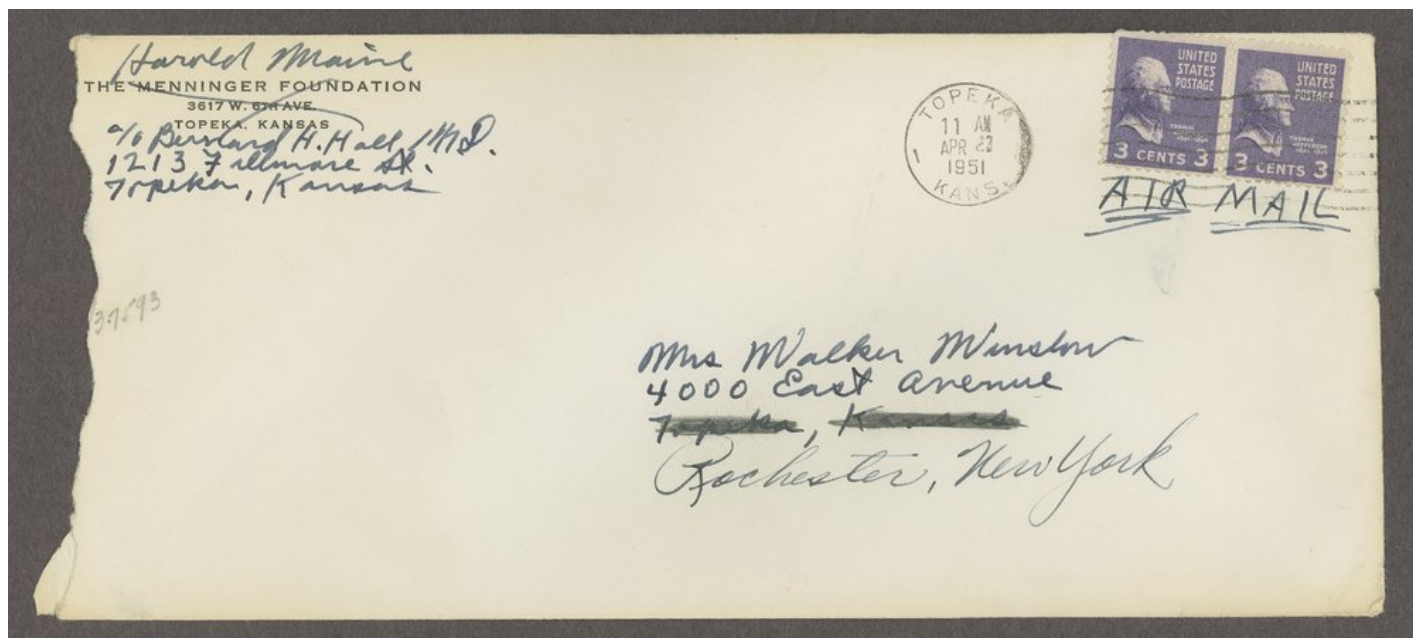 Harold Maine
THE MENNINGER FOUNDATION
3617 W. 6TH AVE.
TOPEKA, KANSAS
c/o Bernard H. Hall, M.D.
1213 Fillmore St.
Topeka, Kansas
TOPEKA
11 AM
APR 23
1951
KANS.
1
UNITED
STATES
POSTAGE
THOMAS
JEFFERSON
3 CENTS 3
UNITED
STATES
POSTAGE
THOMAS
JEFFERSON
3 CENTS 3
AIR MAIL
37593
Mrs Walker Winslow
4000 East Avenue
Topeka, Kansas
Rochester, New York